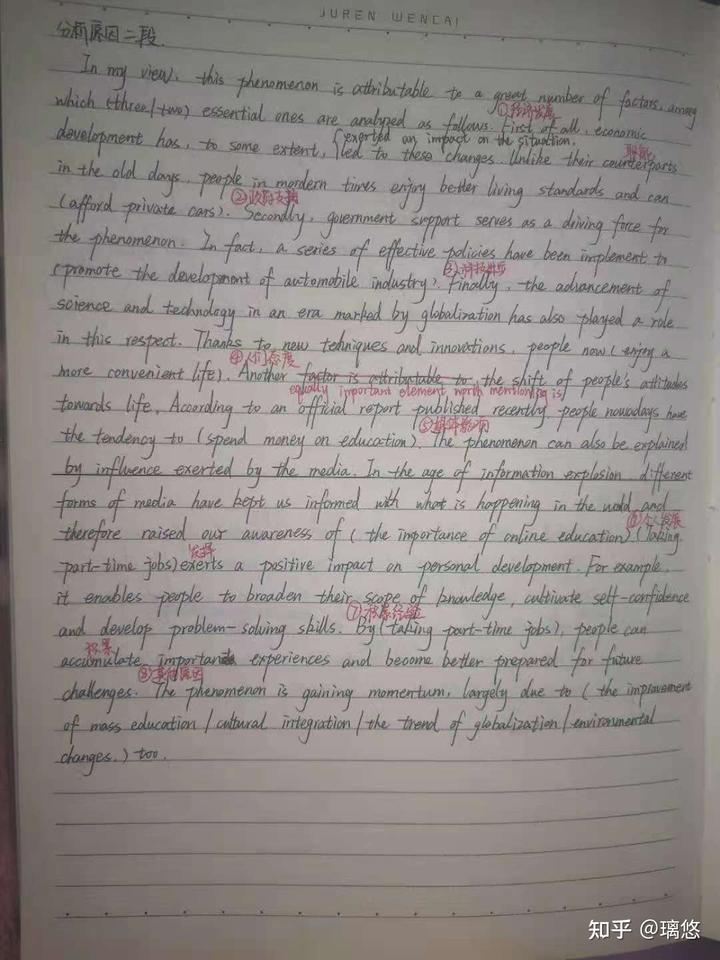 JUREN WENCAI
分析原因二段.
In my view, this phenomenon is attributable to a great number of factors, among
①经济发展
which (three/two) essential ones are analyzed as follows. First of all, economic
{exerted an impact on the situation.
development has, to some extent, led to these changes. Unlike their counterparts
in the old days, people in mordern times enjoy better living standards and can
②政府支持
(afford private cars). Secondly, government support serves as a driving force for
the phenomenon. In fact, a series of effective policies have been implement to
③科技进步
(promote the development of automobile industry). Finally, the advancement of
science and technology in an era marked by globalization has also played a role
in this respect. Thanks to new techniques and innovations, people now (enjoy a
④人们态度
more convenient life). Another factor is attributable to the shift of people's attitudes
equally important element worth mentioning is
towards life. According to an official report published recently, people nowadays have
⑤媒体影响
the tendency to (spend money on education). The phenomenon can also be explained
by influence exerted by the media. In the age of information explosion, different
forms of media have kept us informed with what is happening in the world and
⑥个人发展
therefore raised our awareness of (the importance of online education) (Taking
发挥
part-time jobs) exerts a positive impact on personal development. For example,
it enables people to broaden their scope of knowledge, cultivate self-confidence
⑦积累经验
and develop problem-solving skills. By (taking part-time jobs), people can
积累
accumulate important experiences and become better prepared for future
⑧其他原因
challenges. The phenomenon is gaining momentum, largely due to (the improvement
of mass education/cultural integration/the trend of globalization/environmental
changes.) too.
知乎 @璃悠